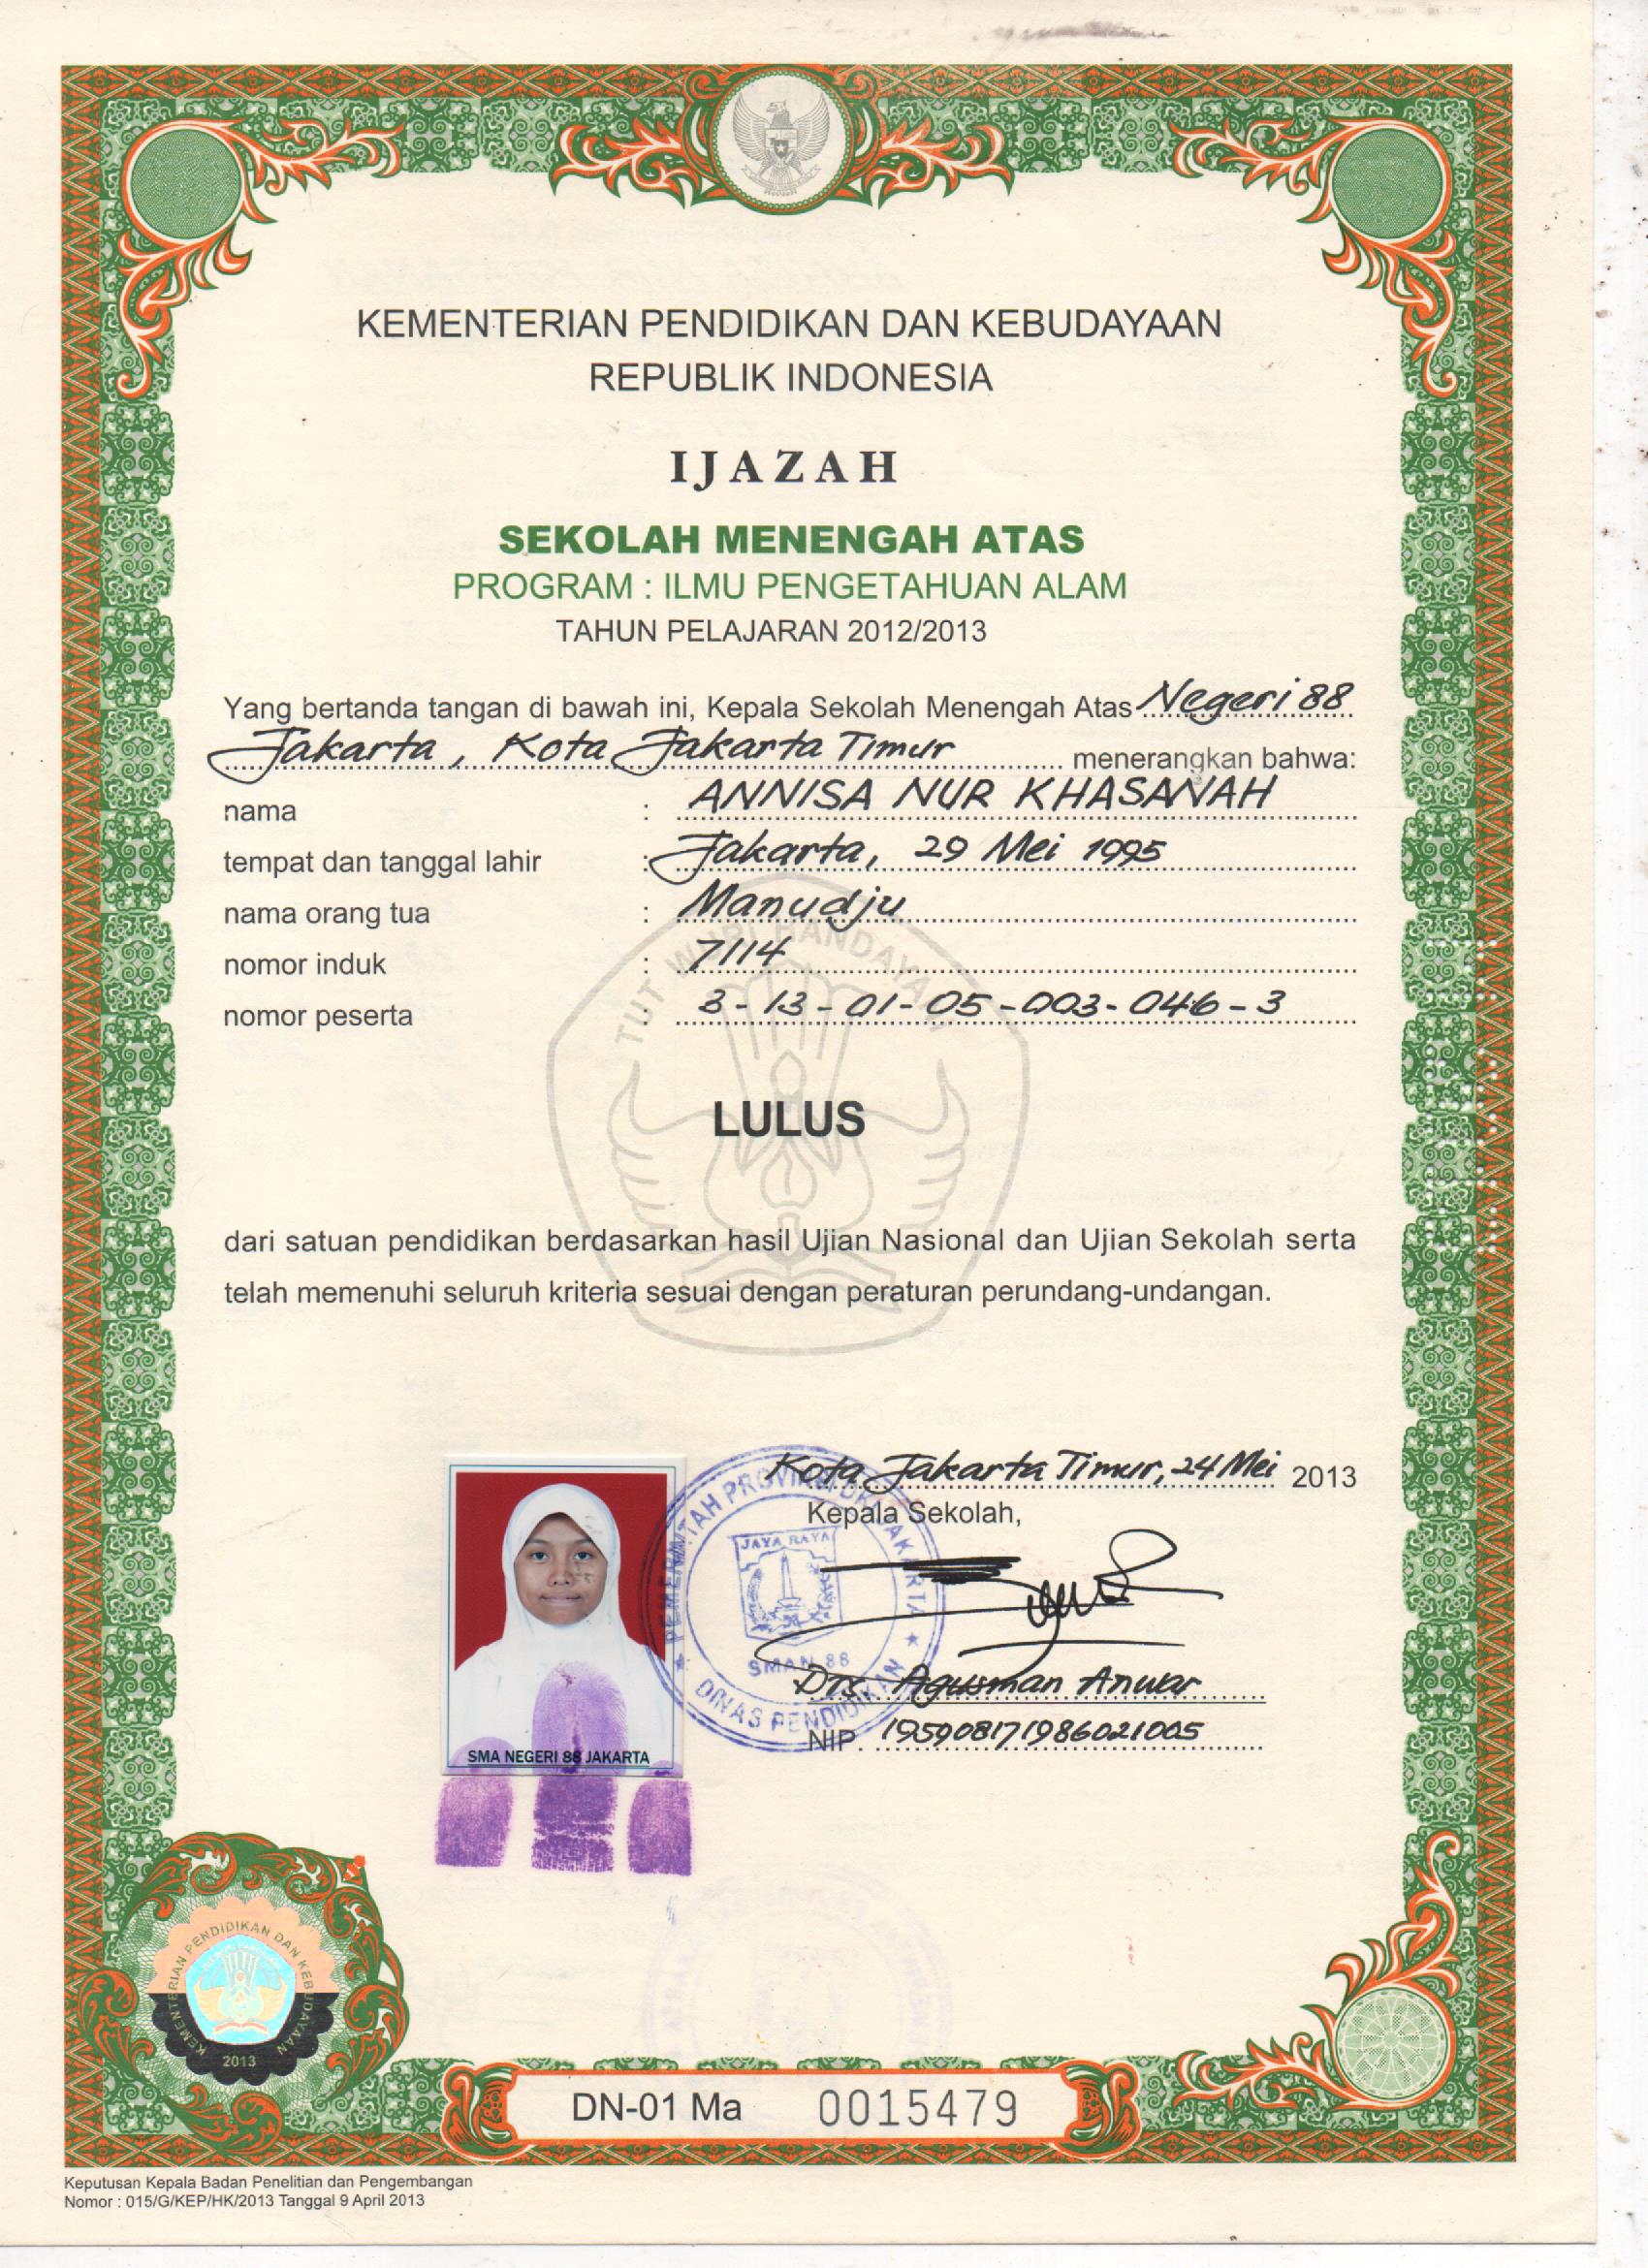 KEMENTERIAN PENDIDIKAN DAN KEBUDAYAAN
REPUBLIK INDONESIA
IJAZAH
SEKOLAH MENENGAH ATAS
PROGRAM : ILMU PENGETAHUAN ALAM
TAHUN PELAJARAN 2012/2013
Yang bertanda tangan di bawah ini, Kepala Sekolah Menengah Atas Negeri 88
Jakarta, Kota Jakarta Timur menerangkan bahwa:
nama : ANNISA NUR KHASANAH
tempat dan tanggal lahir : Jakarta, 29 Mei 1995
nama orang tua : Manudju
nomor induk : 7114
nomor peserta : 3-13-01-05-003-046-3
TUT WURI HANDAYANI
LULUS
dari satuan pendidikan berdasarkan hasil Ujian Nasional dan Ujian Sekolah serta
telah memenuhi seluruh kriteria sesuai dengan peraturan perundang-undangan.
Kota Jakarta Timur, 24 Mei 2013
Kepala Sekolah,
PEMERINTAH PROVINSI DKI JAKARTA
JAYA RAYA
SMAN 88
DINAS PENDIDIKAN
Drs. Agusman Anwar
NIP. 195908171986021005
SMA NEGERI 88 JAKARTA
KEMENTERIAN PENDIDIKAN DAN KEBUDAYAAN
2013
DN-01 Ma 0015479
Keputusan Kepala Badan Penelitian dan Pengembangan
Nomor : 015/G/KEP/HK/2013 Tanggal 9 April 2013